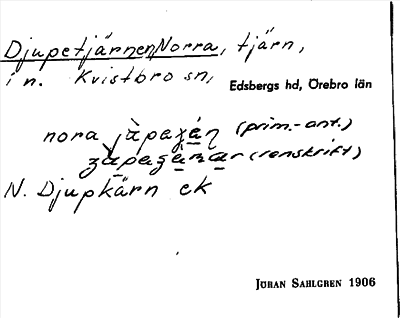 Djupetjärnen, Norra, tjärn,
i n. Kvistbro sn,
Edsbergs hd, Örebro län
nora (prim.-ant.)
(renskrift)
N. Djupkärn ek
JÖRAN SAHLGREN 1906